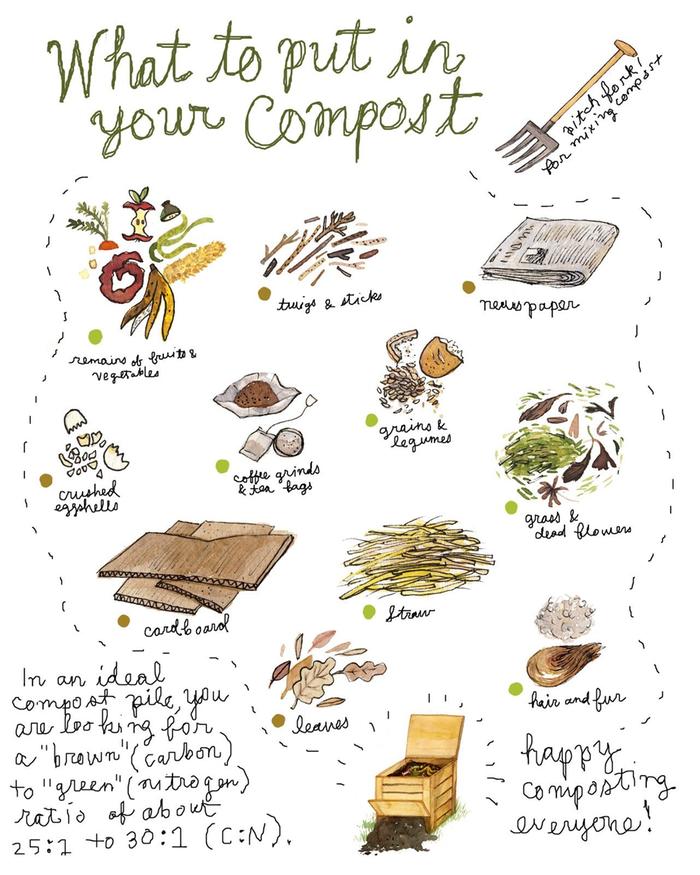 What to put in
your Compost
pitch fork!
for mixing compost
twigs & sticks
newspaper
remains of fruits &
vegetables
grains &
legumes
crushed
eggshells
coffee grinds
& tea bags
grass &
dead flowers
cardboard
straw
hair and fur
leaves
In an ideal
compost pile, you
are looking for
a "brown" (carbon)
to "green" (nitrogen)
ratio of about
25:1 to 30:1 (C:N).
happy
composting
everyone!